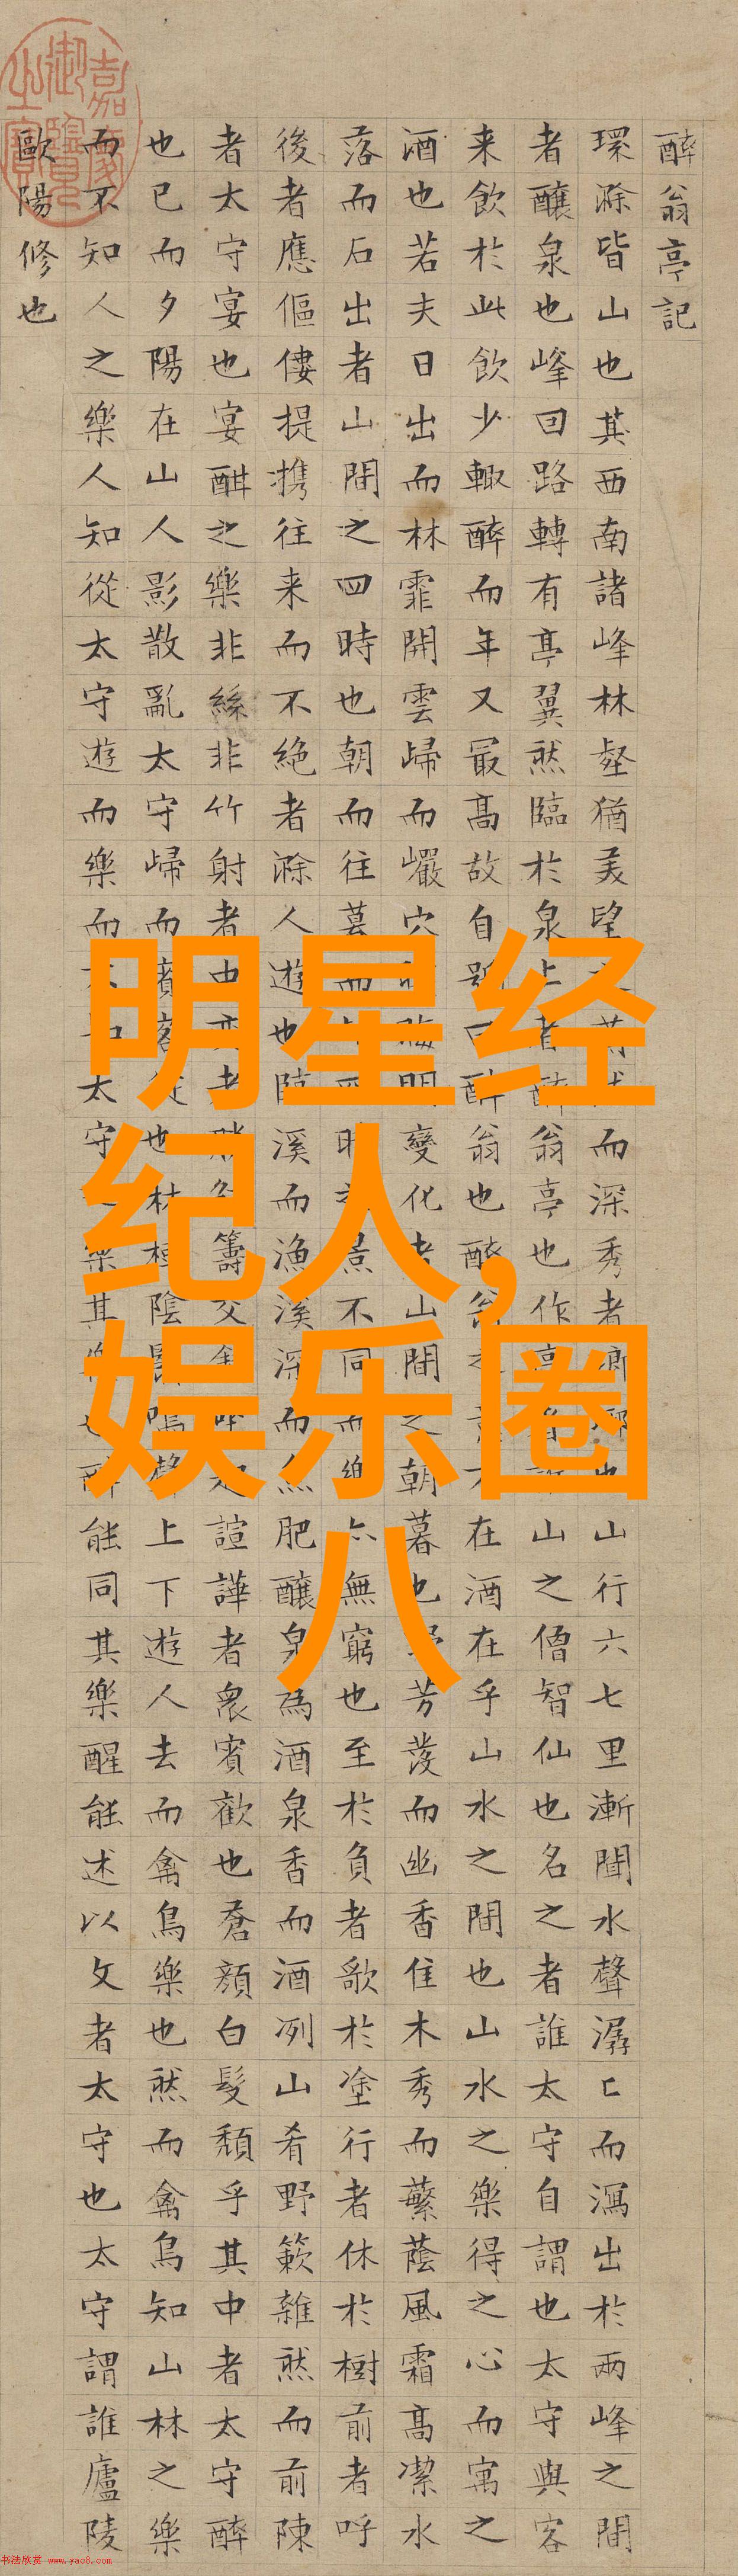 醉翁亭記
環滁皆山也其西南諸峰林壑猶美望而深秀者也山行六七里漸聞水聲潺〻而瀉出於兩峰之間
者釀泉也峰回路轉有亭翼然臨於泉上者醉翁亭也作亭山之僧智仙也名之者誰太守自謂也太守與客
来飲於此飲少輒醉而年又最高故自號曰醉翁也醉翁之在酒在乎山水之間也山水之樂得之心而寓之
酒也若夫日出而林霏開雲歸而巖穴晦明變化者山間之朝暮也芳發而幽香佳木秀而蘩蔭風霜高潔水
落而石出者山間之四時也朝而往暮而時之景不同而樂亦無窮也至於負者歌於塗行者休於樹前者呼
後者應傴僂提携往来而不絶者滁人遊也臨溪而漁溪深而魚肥釀泉為酒泉香而酒冽山肴野蔌雜然而前陳
者太守宴也宴酣之樂非絲非竹射者中奕者勝籌交起諠譁者衆賓歡也蒼顔白髮頹乎其中者太守醉
也已而夕陽在山人影散亂太守歸而賓客從也林樾陰翳鳴聲上下遊人去而禽鳥樂也然而禽鳥知山林之樂
而不知人之樂人知從太守遊而樂而不知太守樂其樂也醉能同其樂醒能述以文者太守也太守謂誰廬陵
歐陽修也
嘉慶御覽之寶
明星经
纪人,
娱乐圈
八
书法欣赏 www.yac8.com